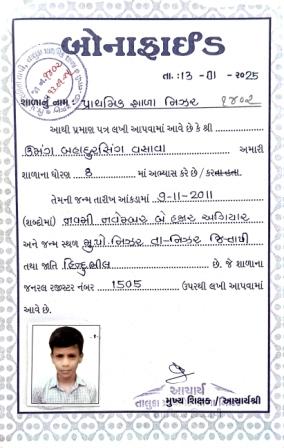 બોનાફાઈડ
તા. :13 -01 -2025
શાળાનું નામ : પ્રાથમિક શાળા નિઝર ૧૪૦૨
આથી પ્રમાણ પત્ર લખી આપવામાં આવે છે કે શ્રી
ઉમંગ બહાદુરસિંગ વસાવા અમારી
શાળાના ધોરણ 8 માં અભ્યાસ કરે છે / કરતા હતા.
તેમની જન્મ તારીખ આંકડામાં 9-11-2011
(શબ્દોમાં) નવમી નવેમ્બર બે હજાર અગિયાર
અને જન્મ સ્થળ મુ.પો. નિઝર તા-નિઝર જિ-તાપી
તથા જાતિ હિન્દુ ભીલ છે. જે શાળાના
જનરલ રજીસ્ટર નંબર 1505 ઉપરથી લખી આપવામાં
આવે છે.
આચાર્ય
મુખ્ય શિક્ષક / આચાર્યશ્રી